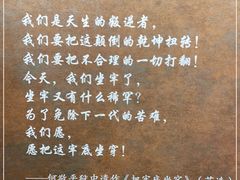 我们是天生的叛逆者，
我们要把这颠倒的乾坤扭转！
我们要把不合理的一切打翻！
今天，我们坐牢了，
坐牢又有什么稀罕？
为了免除下一代的苦难，
我们愿，
愿把这牢底坐穿！
——何敬平狱中遗作《把牢底坐穿》（节选）